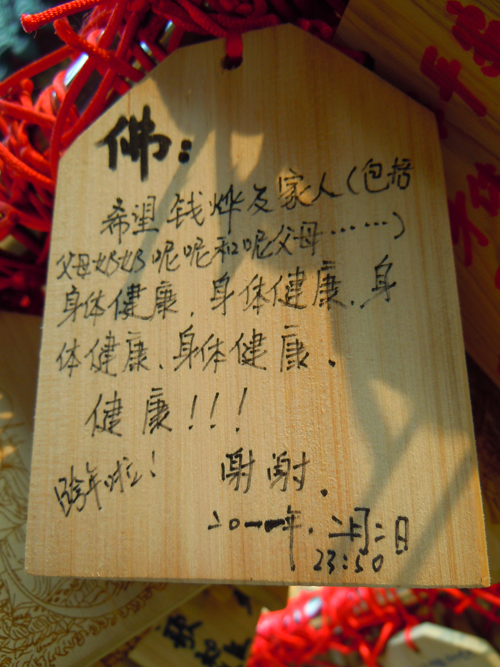 佛：
希望钱烨及家人（包括
父母奶奶呢呢和呢父母……）
身体健康、身体健康、身
体健康、身体健康、
健康！！！
跨年啦！ 谢谢．
二〇一一年．二月二日
23:50